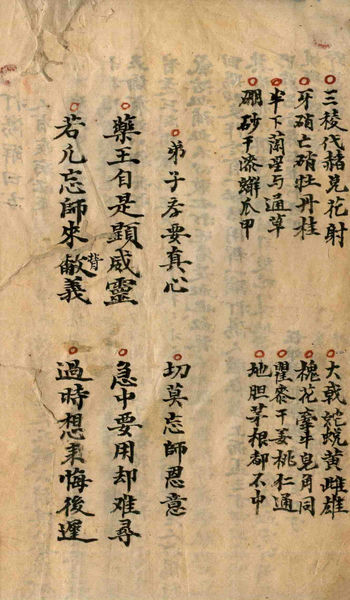 三棱代赭兎花射
大戟蛇蜕黄雌雄
牙硝亡硝牡丹桂
槐花牽牛皂角同
半下南星与通草
瞿麥干姜桃仁通
硼砂干漆蠏爪甲
地胆茅根都不中
弟子吞要真心
切莫忘師恩意
藥王自是顕威靈
急中要用却难尋
若凢忘師來背敝義
過時想来悔後遲